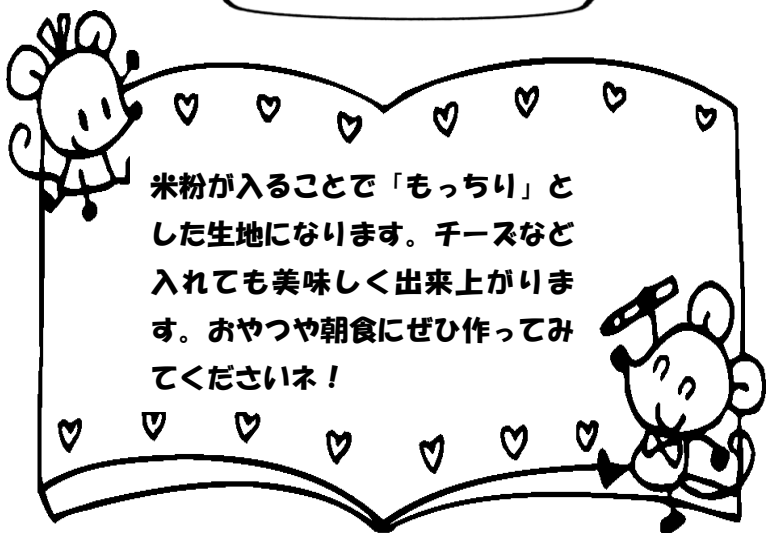 米粉が入ることで「もっちり」と
した生地になります。チーズなど
入れても美味しく出来上がりま
す。おやつや朝食にぜひ作ってみ
てくださいネ！